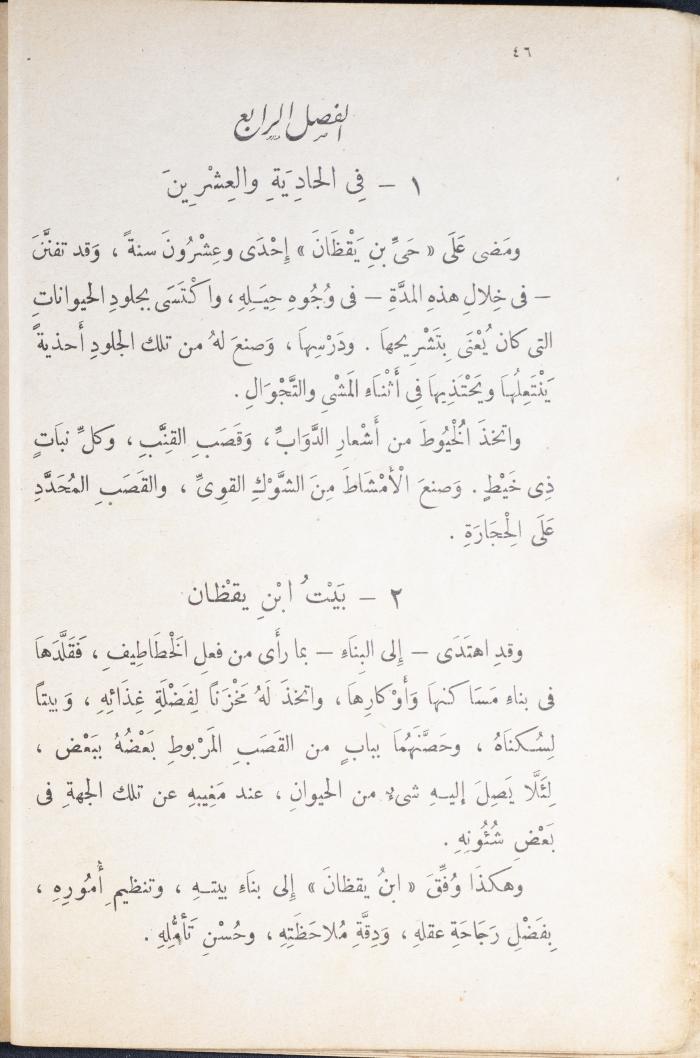 ٤٦
الفصل الرابع
١ – فِي الحادِيَةِ والعِشْرِينَ
ومَضى عَلَى « حَيِّ بنِ يَقْظَانَ » إِحْدَى وعِشْرُونَ سنةً ، وَقد تفنَّنَ
– فى خِلالِ هذهِ المدَّةِ – فى وُجُوهِ حِيَلِهِ، واكْتَسَى بجلودِ الحيواناتِ
التى كان يُعْنَى بِتَشْرِيحها . ودَرْسِها ، وَصنعَ لهُ من تلك الجلودِ أَحذيةً
يَنْتَعِلُها ويَحْتَذِيها فِى أَثْنَاءِ المَشْىِ والتَّجْوَالِ .
واتخذَ الْخُيُوطَ من أَشْعارِ الدَّوَابِّ ، وَقَصَبِ القِنَّبِ ، وكلِّ نَباتٍ
ذِى خَيْطٍ . وَصنعَ الْأَمْشَاطَ مِنَ الشَّوْكِ القوِىِّ ، والقَصَبِ المُحَدَّدِ
عَلَى الْحِجَارَةِ .
٢ – بَيْتُ ابْنِ يقظان
وقدِ اهتَدَى – إِلى البِنَاءِ – بما رأَى من فعلِ الْخَطَاطِيفِ ، فَقَلَّدَهَا
فى بناءِ مَسَاكنِهَا وَأَوْكارِهَا ، واتخذَ لَهُ مَخْزَنًا لِفَضْلَةِ غِذَائِهِ ، وَبيتاً
لِسُكنَاهُ ، وحَصَّنَهُمَا ببابٍ من القَصَبِ المَرْبوطِ بَعْضُهُ ببَعْض ،
لِئَلَّا يَصِلَ إليهِ شىءٌ من الحيوانِ ، عند مَغِيبهِ عن تلك الجهةِ فى
بَعْضِ شُئُونِهِ .
وَهكذَا وُفِّقَ « ابنُ يقظانَ » إِلى بنَاءِ بيتهِ ، وتنظيمِ أُمُورِهِ ،
بِفَضْلِ رَجَاحَةِ عقلهِ ، وَدِقَّةِ مُلاحَظَتِهِ ، وحُسْنِ تَأَمُّلِهِ .